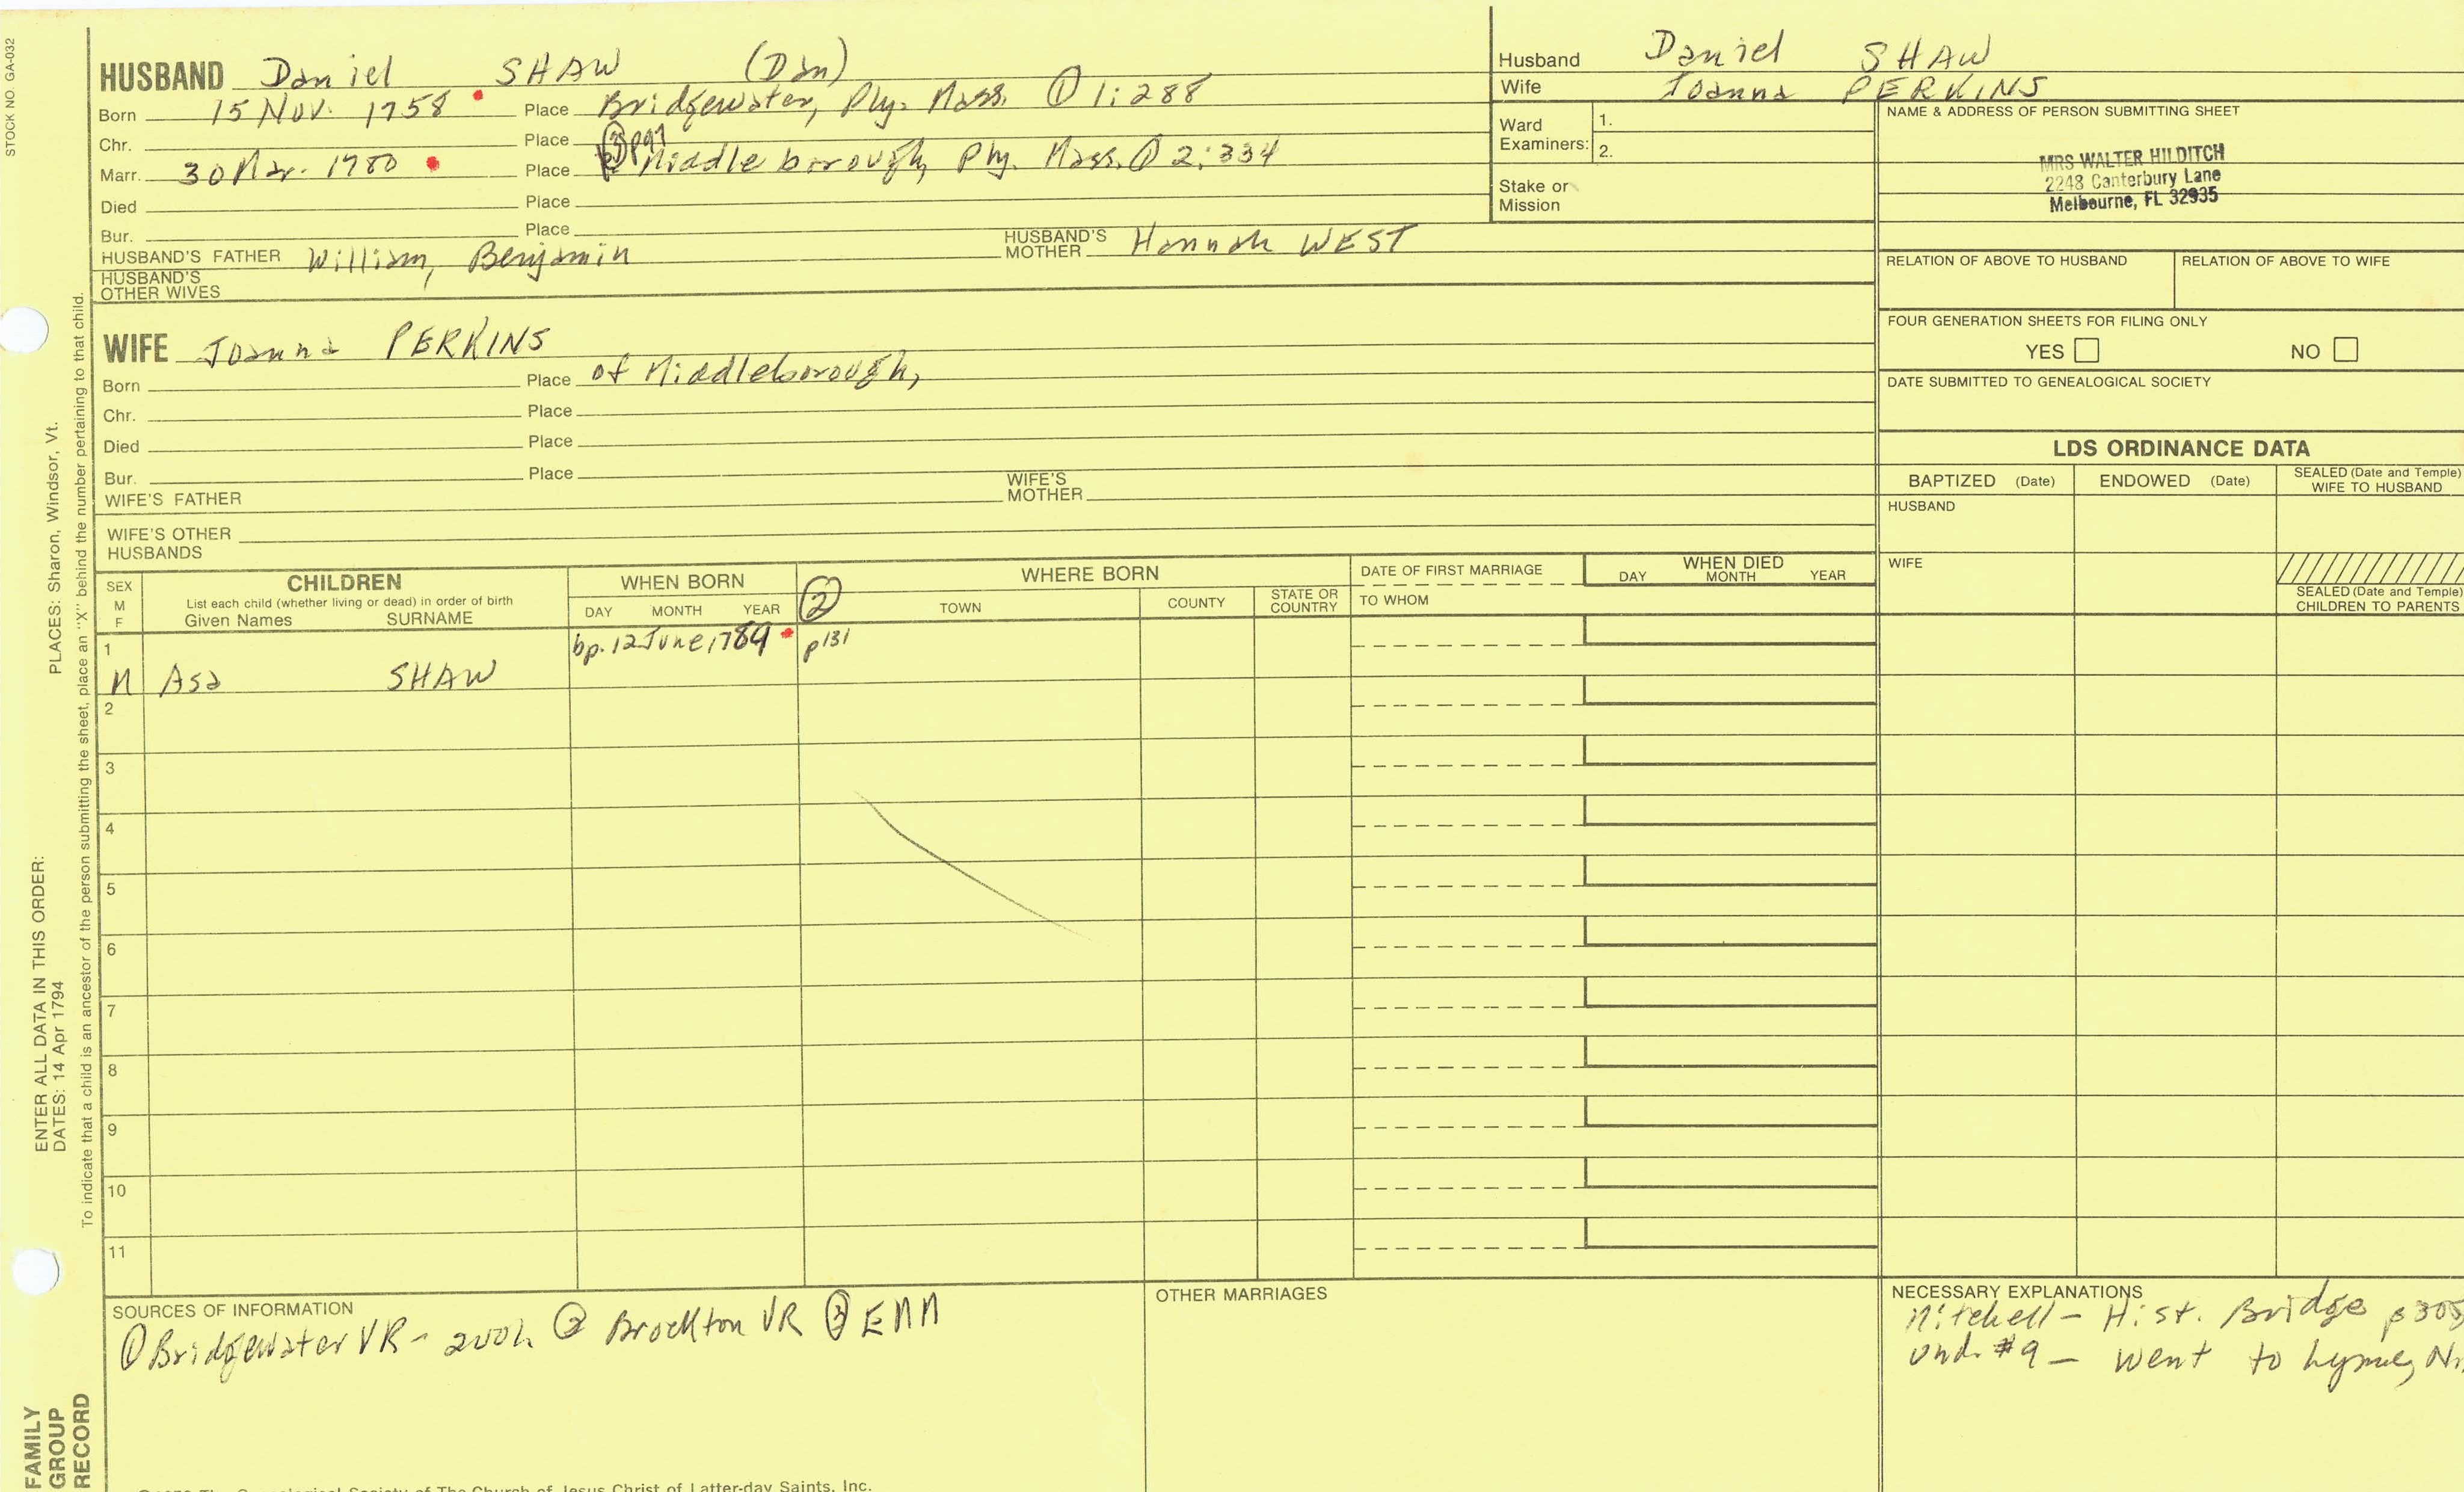 STOCK NO. GA-032
HUSBAND Daniel SHAW (Dan)
Born 15 Nov. 1758 Place Bridgewater, Ply. Mass. ① 1:288
Chr. Place
③ p97
Marr. 30 Mar. 1780 Place Middleborough, Ply. Mass. ① 2:334
Died Place
Bur. Place
HUSBAND'S FATHER William, Benjamin HUSBAND'S MOTHER Hannah WEST
HUSBAND'S OTHER WIVES
Husband Daniel SHAW
Wife Joanna PERKINS
Ward Examiners: 1.
2.
Stake or Mission
NAME & ADDRESS OF PERSON SUBMITTING SHEET
MRS WALTER HILDITCH
2248 Canterbury Lane
Melbourne, FL 32935
RELATION OF ABOVE TO HUSBAND RELATION OF ABOVE TO WIFE
FOUR GENERATION SHEETS FOR FILING ONLY
YES NO
DATE SUBMITTED TO GENEALOGICAL SOCIETY
WIFE Joanna PERKINS
Born Place of Middleborough,
Chr. Place
Died Place
Bur. Place
WIFE'S FATHER WIFE'S MOTHER
WIFE'S OTHER HUSBANDS
LDS ORDINANCE DATA
BAPTIZED (Date) ENDOWED (Date) SEALED (Date and Temple) WIFE TO HUSBAND
HUSBAND
WIFE
SEALED (Date and Temple) CHILDREN TO PARENTS
SEX M F
CHILDREN
List each child (whether living or dead) in order of birth
Given Names SURNAME
WHEN BORN
DAY MONTH YEAR
②
WHERE BORN
TOWN COUNTY STATE OR COUNTRY
DATE OF FIRST MARRIAGE
TO WHOM
WHEN DIED
DAY MONTH YEAR
1 bp. 12 June 1789 p131
M Asa SHAW
2
3
4
5
6
7
8
9
10
11
SOURCES OF INFORMATION
① Bridgewater VR - ② Brockton VR ③ EMM
OTHER MARRIAGES
NECESSARY EXPLANATIONS
Mitchell - Hist. Bridge p 305
und. #9 - went to Lyme, N
PLACES: Sharon, Windsor, Vt.
ENTER ALL DATA IN THIS ORDER:
DATES: 14 Apr 1794
To indicate that a child is an ancestor of the person submitting the sheet, place an "X" behind the number pertaining to that child.
FAMILY
GROUP
RECORD
Genealogical Society of The Church of Jesus Christ of Latter-day Saints, Inc.